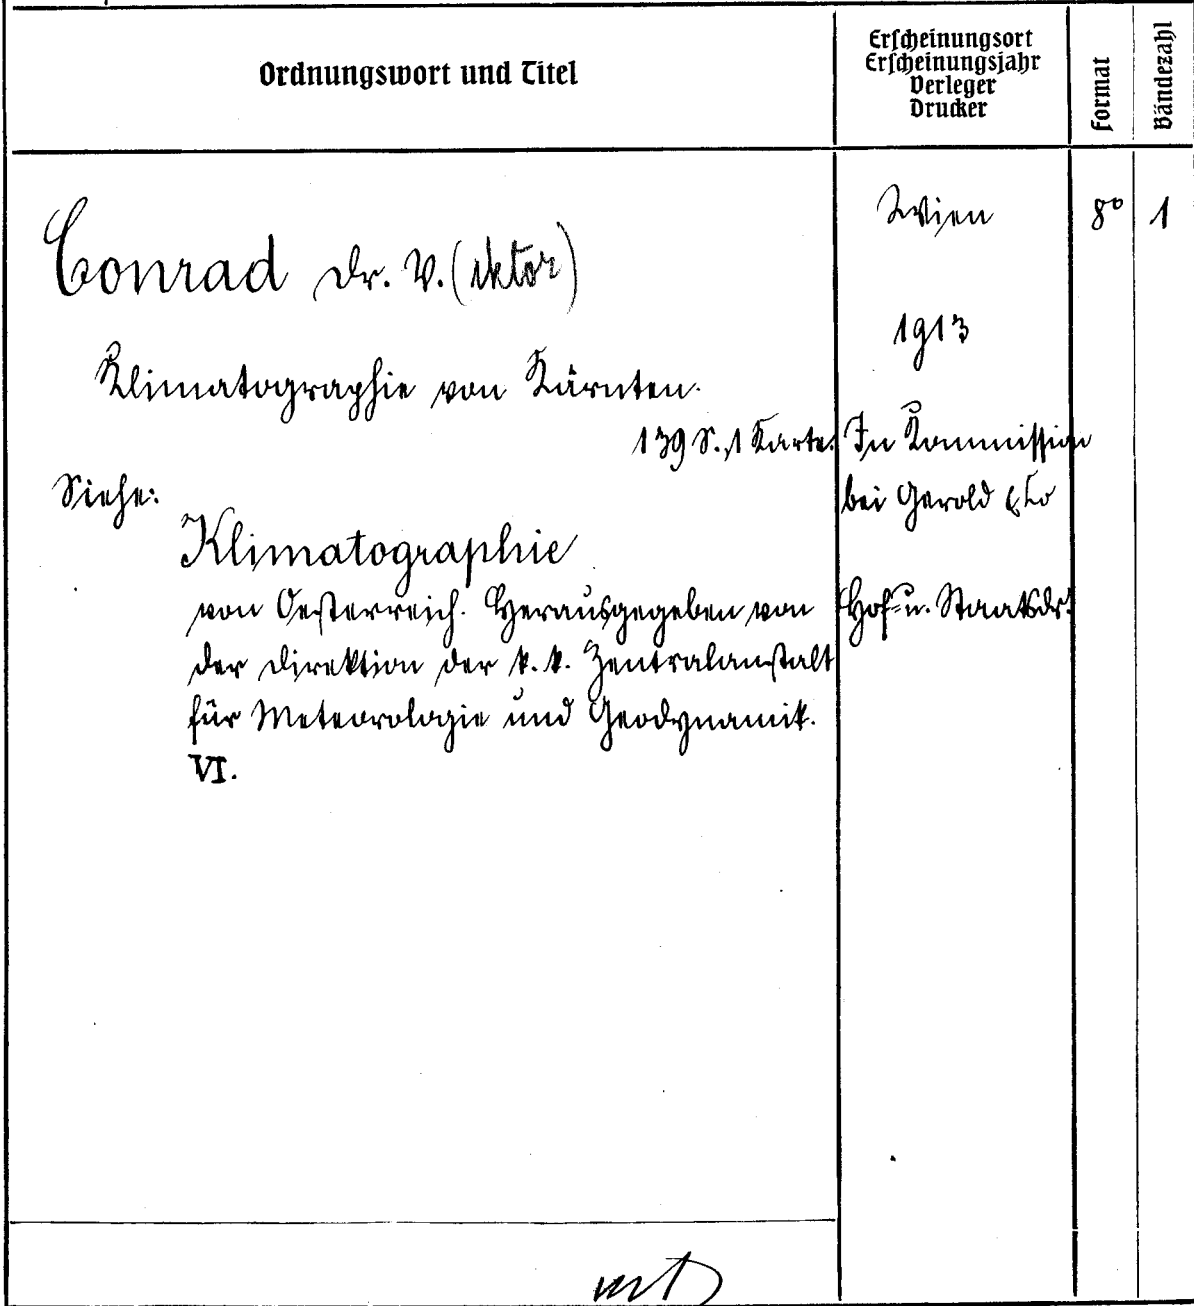 Ordnungswort und Titel
Erscheinungsort
Erscheinungsjahr
Verleger
Drucker
Format
Bändezahl
Conrad Dr. V.(iktor)
Klimatographie von Kärnten.
139 S., 1 Karte.
Siehe:
Klimatographie
von Oesterreich. Herausgegeben von
der Direktion der k. k. Zentralanstalt
für Meteorologie und Geodynamik.
VI.
Wien
1913
In Kommission
bei Gerold & Co
Hof- u. Staatsdr.
8°
1